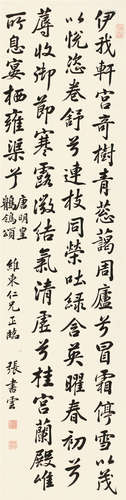 伊我軒宮奇樹青蔥藹周廬兮冒霜停雪以茂
以悅恣卷舒兮連枝同榮吐綠含英曜春初兮
蓐收御節寒露微結氣清虛兮桂宮蘭殿唯
所息宴棲雍渠兮
唐明皇
鶺鴒頌
維東仁兄正臨
張書雲